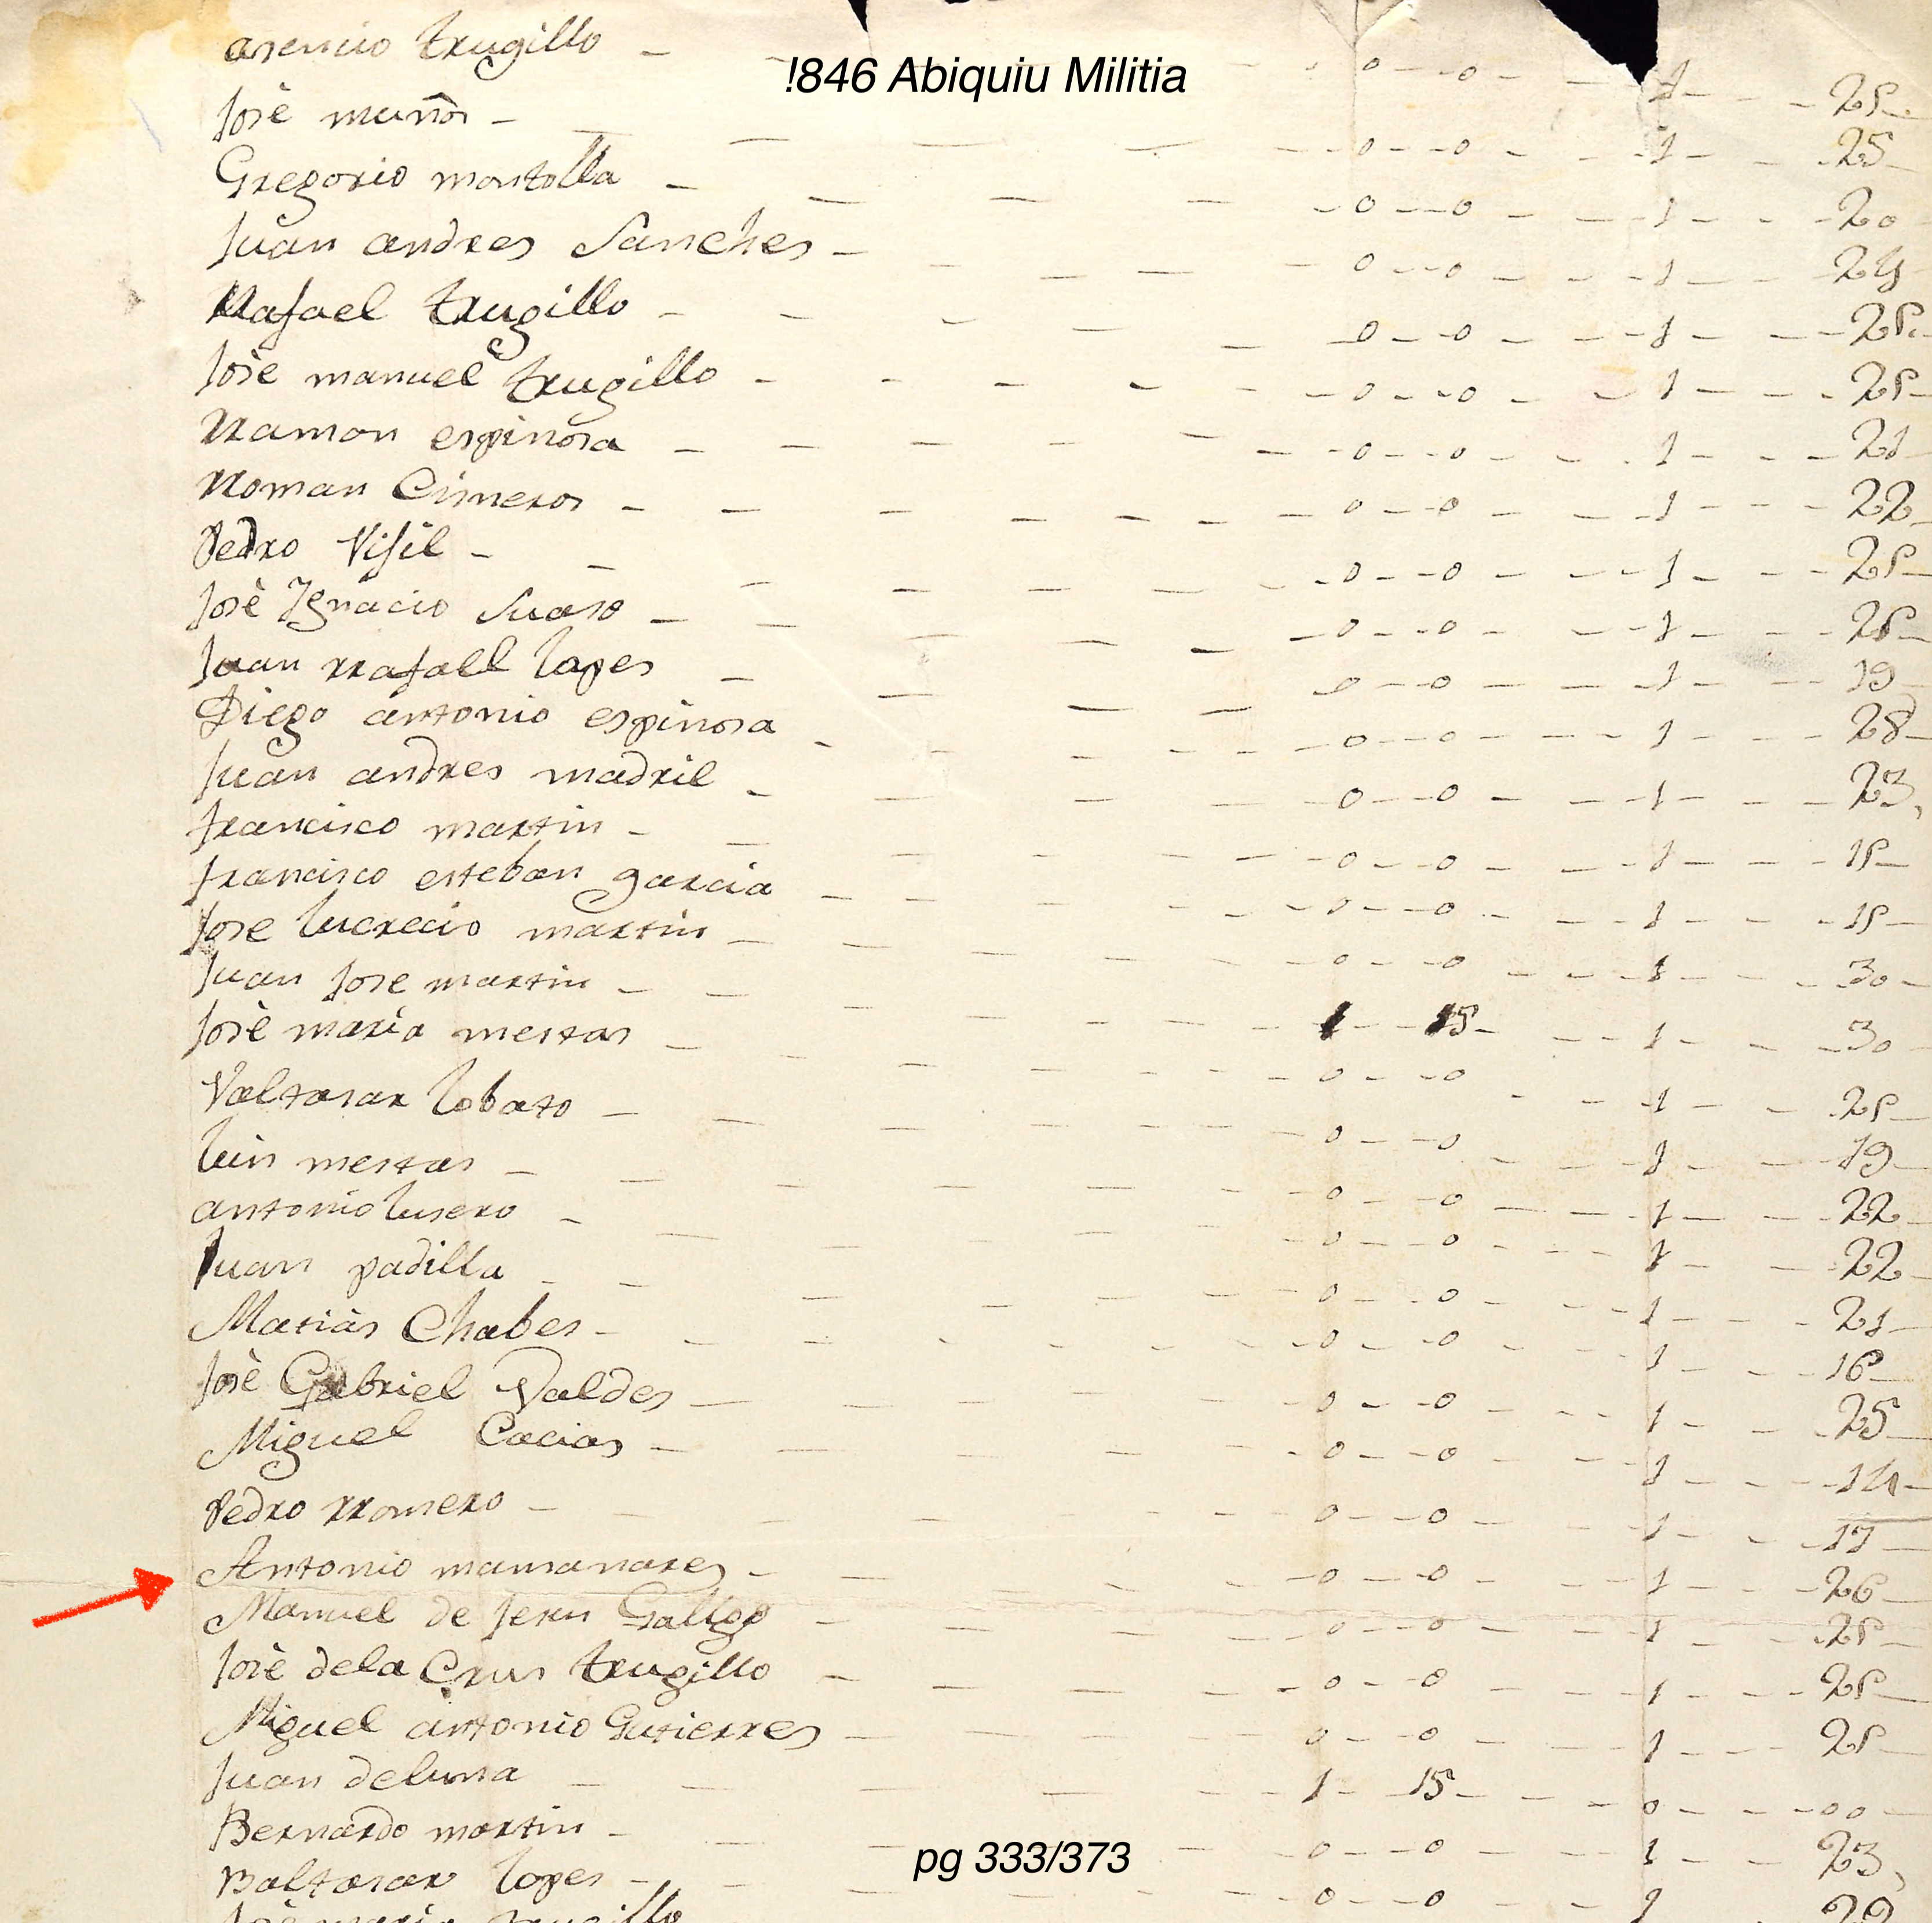 !846 Abiquiu Militia
asencio trugillo - 0 - 0 - 1 - 25
Josè muños - 0 - 0 - 1 - 25
Gregorio montolla - 0 - 0 - 1 - 20
Juan andres Sanches - 0 - 0 - 1 - 24
Rrafael trugillo - 0 - 0 - 1 - 25
Josè manuel trugillo - 0 - 0 - 1 - 25
Rramon espinosa - 0 - 0 - 1 - 21
Rroman Cisneros - 0 - 0 - 1 - 22
Pedro Visil - 0 - 0 - 1 - 25
Josè Ygnacio Suaso - 0 - 0 - 1 - 25
Juan rrafaell lopes - 0 - 0 - 1 - 19
Diego antonio espinosa - 0 - 0 - 1 - 28
Juan andres madril - 0 - 0 - 1 - 23
francisco martin - 0 - 0 - 1 - 15
francisco esteban garcia - 0 - 0 - 1 - 15
Jose lucrecio martin - 0 - 0 - 1 - 30
Juan Jose martin - 1 - 15 - 1 - 30
Josè maria mestas - 0 - 0 - 1 - 25
Valtasar lobato - 0 - 0 - 1 - 19
luis mestas - 0 - 0 - 1 - 22
antonio lusero - 0 - 0 - 1 - 22
Juan padilla - 0 - 0 - 1 - 21
Matias Chabes - 0 - 0 - 1 - 16
Josè Gabriel Valdes - 0 - 0 - 1 - 25
Miguel Cacias - 0 - 0 - 1 - 14
Pedro rromero - 0 - 0 - 1 - 17
Antonio mansanares - 0 - 0 - 1 - 26
Manuel de Jesus Gallego - 0 - 0 - 1 - 25
Josè dela Crus trugillo - 0 - 0 - 1 - 25
Miguel antonio Gutierres - 0 - 0 - 1 - 25
Juan deluna - 1 - 15 - 0 - 00
Bernardo martin - 0 - 0 - 1 - 23
Baltasar lopes - 0 - 0 - 1
Josè maria trugillo
pg 333/373